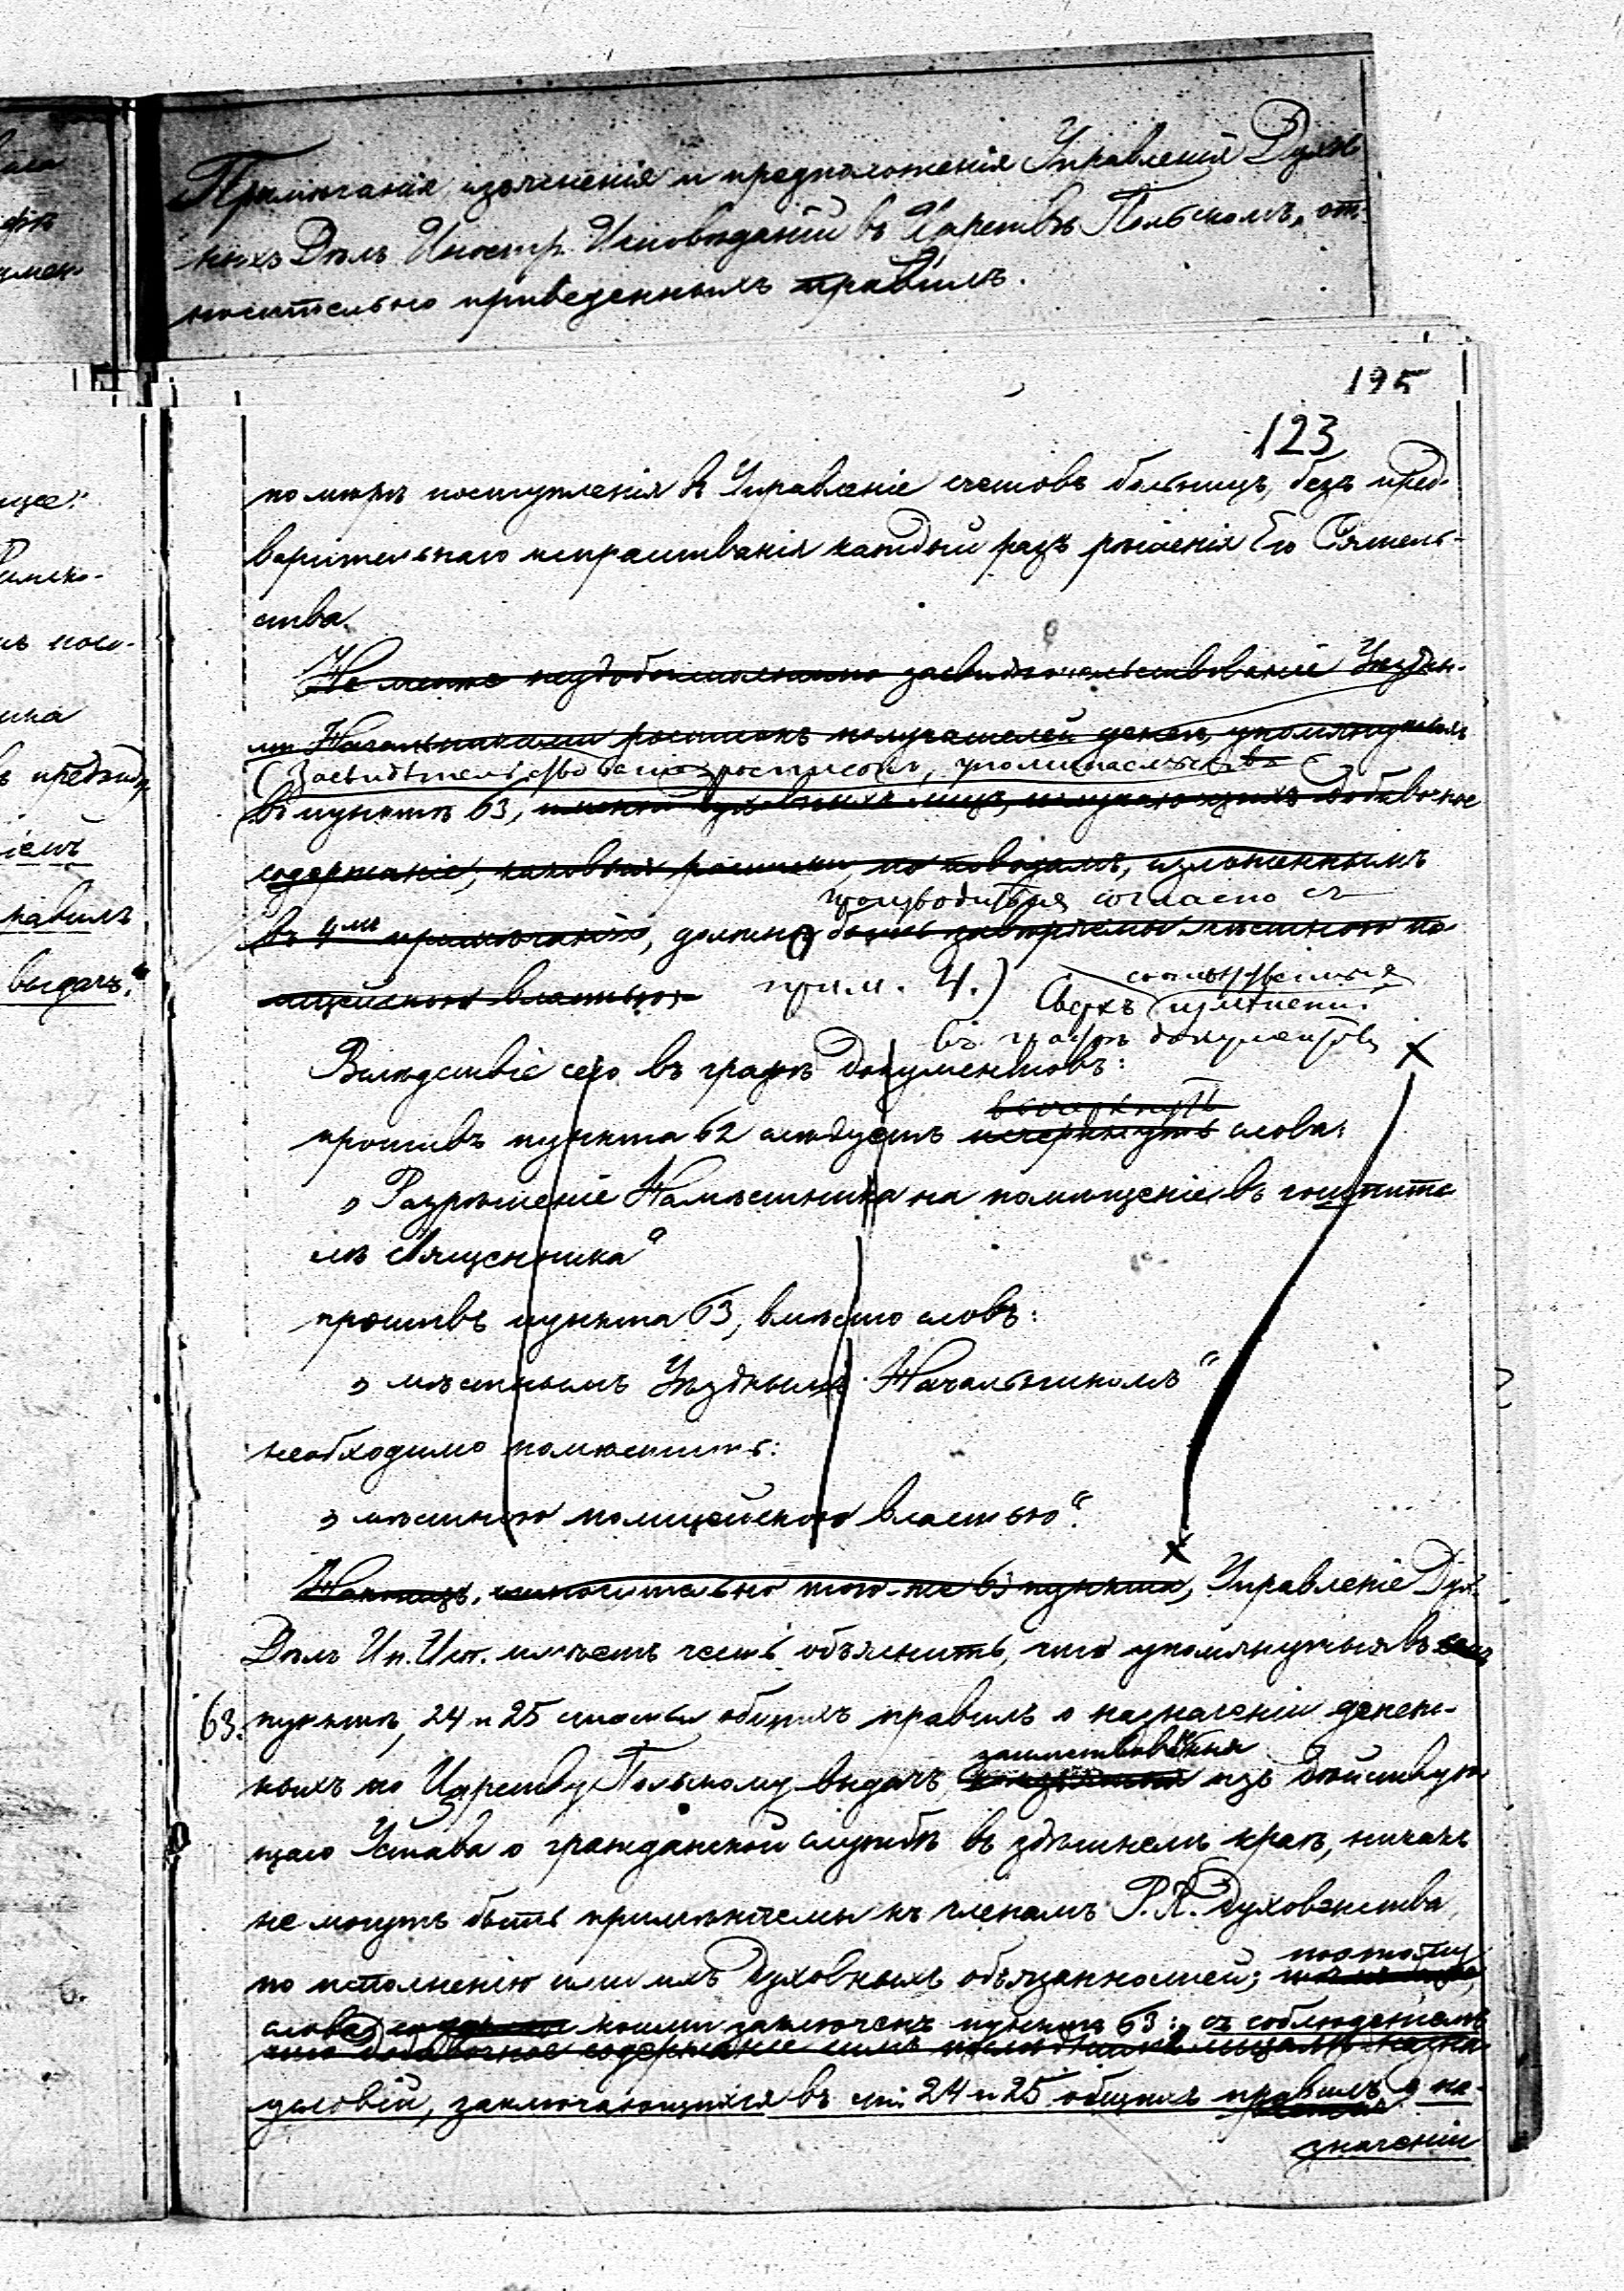 Примѣчанія, изъясненія и предположенія Управленія Духов
ныхъ Дѣлъ Иностр. Исповѣданій въ Царствѣ Польскомъ, от-
носительно приведенныхъ правилъ.
195
123
по мѣрѣ поступленія въ Управленіе счетовъ больницъ, безъ пред-
варительнаго испрашиванія каждый разъ рѣшенія Его Сіятель-
ства.
Не менѣе неудобоисполнимо засвидѣтельствованіе Уѣздны-
ми Начальниками росписокъ получателей денегъ, упомянутыхъ
(Засвидѣтельствованіе росписокъ, упоминаемыхъ въ
въ пунктѣ 63, духовныхъ лицъ, получающихъ добавочное
содержаніе, каковыя росписки, по поводамъ, изложеннымъ
производиться согласно съ
въ 4мъ примѣчаніи, должно быть завѣряемы мѣстною по-
лицейскою властью;
прим. 4.)
Сверхъ измѣненій
въ графѣ документовъ
Вслѣдствіе сего въ графѣ документовъ:
вычеркнуть
противъ пункта 62 слѣдуетъ исчеркнуть слова:
„Разрѣшеніе Намѣстника на помѣщеніе въ госпита
лѣ священника“
противъ пункта 63, вмѣсто словъ:
„мѣстнымъ Уѣзднымъ Начальникомъ“
необходимо помѣстить:
„мѣстною полицейскою властью“.
Наконецъ, относительно того-же 63 пункта, Управленіе Дух.
Дѣлъ Ин. Исп. имѣетъ честь объяснить, что упомянутыя въ
63. пунктѣ, 24 и 25 статьи общихъ правилъ о назначеніи денеж-
заимствованныя
ныхъ по Царству Польскому выдачъ, изъ дѣйствую
щаго Устава о гражданской службѣ въ здѣшнемъ краѣ, никакъ
не могутъ быть примѣняемы къ членамъ Р. К. духовенства,
поэтому
по исполненію ими ихъ духовныхъ обязанностей;
слова, коими заключенъ пунктъ 63: „съ соблюденіемъ
добавочное содержаніе
условій, заключающихся въ ст. 24 и 25 общихъ правилъ о на-
значеніи